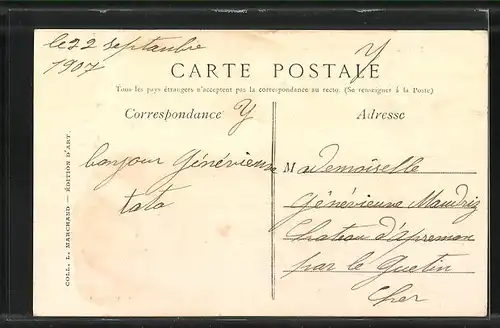 le 22 septanbre
1907
Y
CARTE POSTALE
Tous les pays étrangers n'acceptent pas la correspondance au recto. (Se renseigner à la Poste)
Correspondance
Y
Adresse
bonjour Génévienne
tata
Mademoiselle
Généviennne Maudriz
Chateau d'Apremon
par le Guetin
Cher
COLL. L. MARCHAND — ÉDITION D'ART.